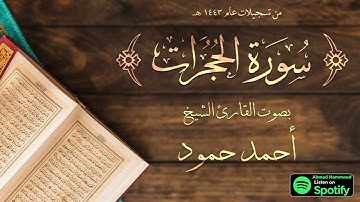 من تسجيلات عام ١٤٤٣ هـ
سُورَةُ الحُجُرَات
بصوت القارئ الشيخ
أحمد حمود
Ahmad Hammoud
Listen on
Spotify